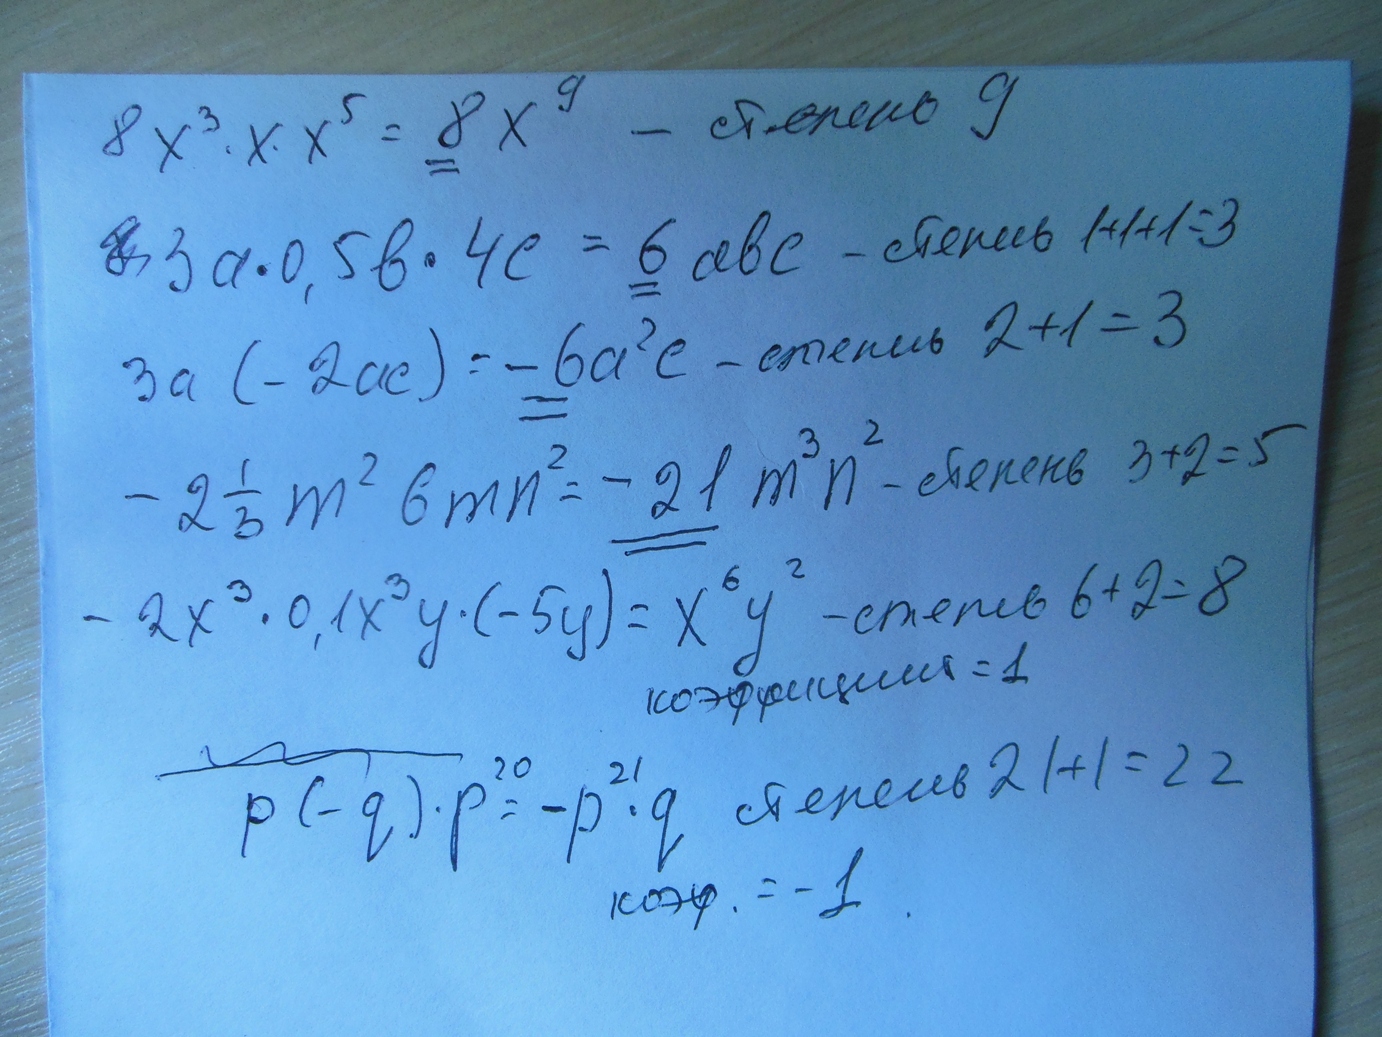 8x³·x·x⁵ = 8x⁹ – степень 9
3a·0,5b·4c = 6abc – степень 1+1+1=3
3a(-2ac) = -6a²c – степень 2+1=3
-2 1/3 m² 6mn² = -21 m³n² – степень 3+2=5
-2x³·0,1x³y·(-5y) = x⁶y² – степень 6+2=8
коэффициент = 1
p(-q)·p²⁰ = -p²¹·q степень 21+1=22
коэф. = -1